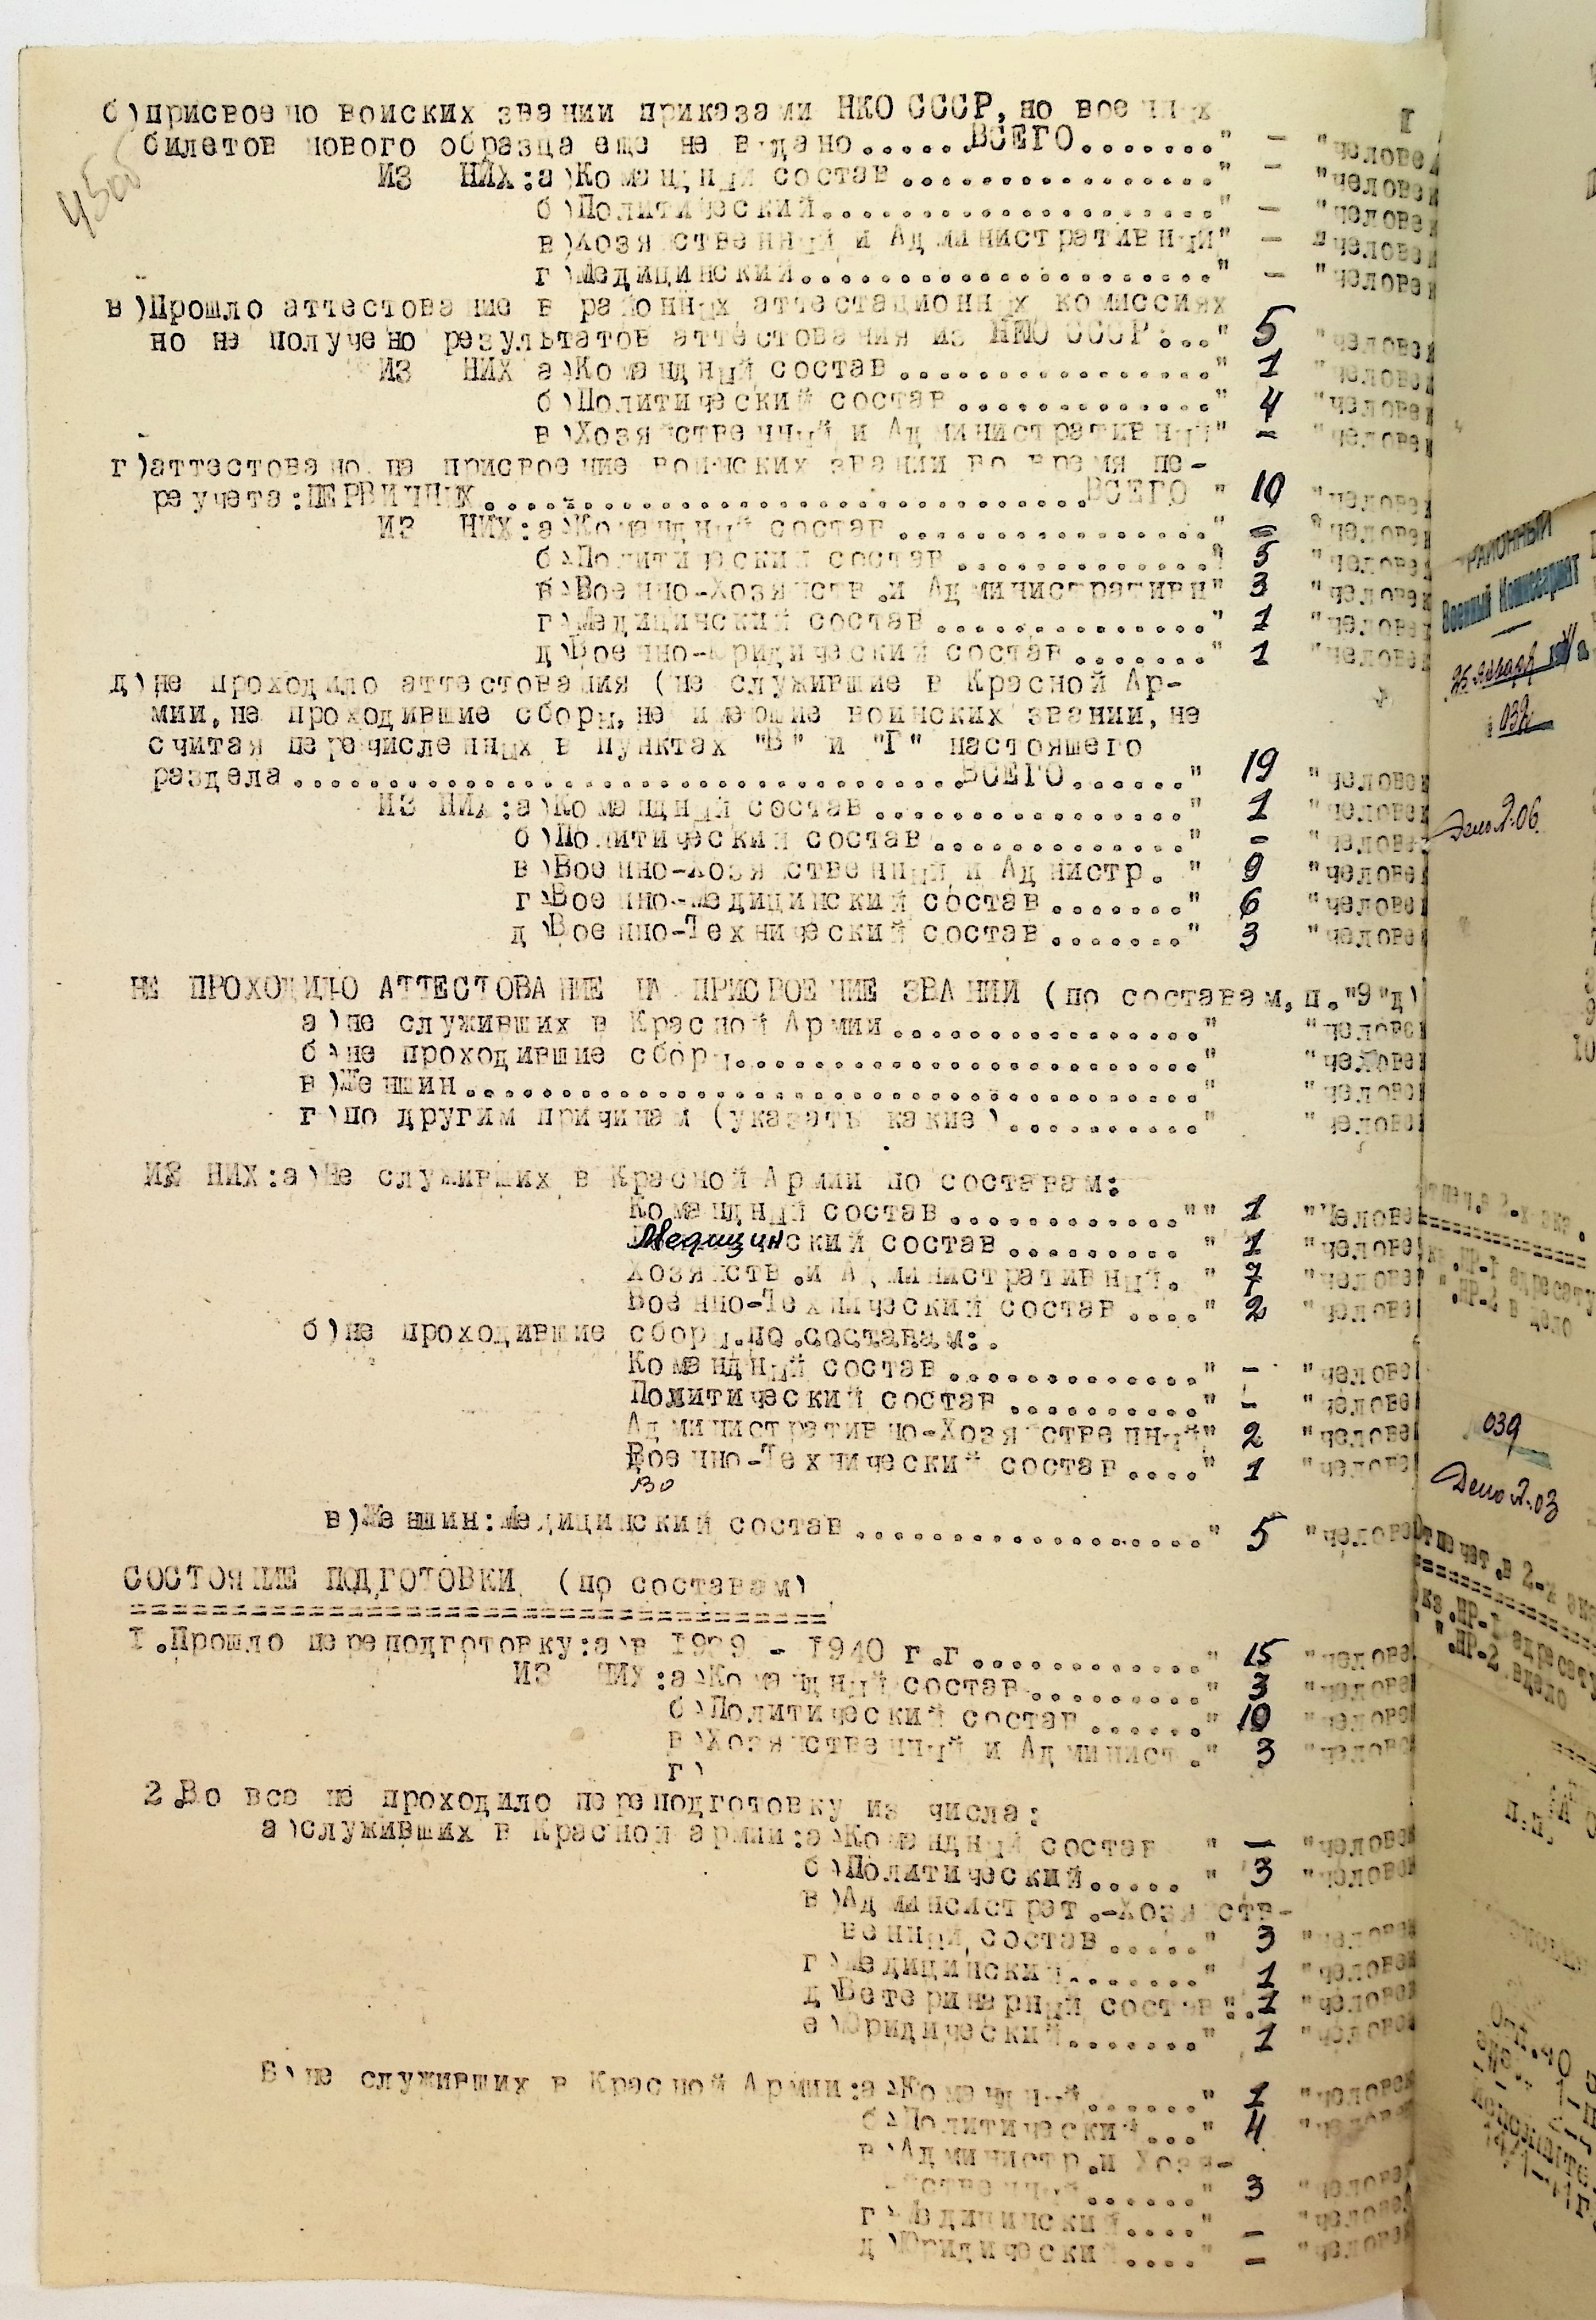 4500
б)присвоено воиских звании приказами НКО СССР, но военных
билетов нового образца еще не видано.....ВСЕГО......." - "человек
ИЗ НИХ:а)Командный состав................" - "человек
б)Политический...................." - "человек
в)Хозяйственный и Административный" - "человек
г)Медицинский....................." - "человек
в)Прошло аттестование в районных аттестационных комиссиях
но не получено результатов аттестования из НКО СССР:..." 5 "человек
ИЗ НИХ а)Командный состав................" 1 "человек
б)Политический состав............." 4 "человек
в)Хозяйственный и Административный" - "человек
г)аттестовано на присвоение воинских звании во время пе-
реучета:ПЕРВИЧНЫХ...............................ВСЕГО " 10 "человек
ИЗ НИХ:а)Командный состав................" - "человек
б)Политический состав............." 5 "человек
в)Военно-Хозяйств.и Административн" 3 "человек
г)Медицинский состав.............." 1 "человек
д)Военно-Юридический состав......." 1 "человек
д)не проходило аттестования (не служившие в Красной Ар-
мии,не проходившие сборы,не имеющие воинских звании,не
считая перечисленных в пунктах "В" и "Г" настоящего
раздела..................................ВСЕГО......" 19 "человек
ИЗ НИХ:а)Командный состав................" 1 "человек
б)Политический состав............." - "человек
в)Военно-Хозяйственный и Админстр. " 9 "человек
г)Военно-Медицинский состав......." 6 "человек
д)Военно-Технический состав......." 3 "человек
НЕ ПРОХОДИЛО АТТЕСТОВАНИЕ НА ПРИСВОЕНИЕ ЗВАНИИ (по составам,п."9"д)
а)не служивших в Красной Армии................" "человек
б)не проходившие сборы........................" "человек
в)Женщин......................................" "человек
г)по другим причинам (указать какие).........." "человек
ИЗ НИХ:а)Не служивших в Красной Армии по составам:
Командный состав............"" 1 "Человек
Медицинский состав......... " 1 "человек
Хозяйств.и Административный. " 7 "человек
Военно-Технический состав...." 2 "человек
б)не проходившие сборы.по.составам:.
Командный состав............." - "человек
Политический состав.........." - "человек
Административно-Хозяйственный" 2 "человек
Военно-Технический состав...." 1 "человек
в)Женщин:Медицинский состав.................." 5 "человек
СОСТОЯНИЕ ПОДГОТОВКИ (по составам)
===================================
I.Прошло переподготовку:а)в 1939 - 1940 г.г............" 15 "человек
ИЗ НИХ:а)Командный состав........." 3 "человек
б)Политический состав......" 10 "человек
в)Хозяйственный и Админист." 3 "человек
г)
2.Во все не проходило переподготовку из числа:
а)служивших в Красной армии:а)Командный состав " - "человек
б)Политический..... " 3 "человек
в)Админсистрат.-Хозяйств-
венный состав....." 3 "человек
г)Медицинский......." 1 "человек
д)Ветеринарный состав". 1 "человек
е)Юридический......." 1 "человек
В)не служивших в Красной Армии:а)Командный......" 1 "человек
б)Политический..." 4 "человек
в)Администр.и Хозя-
йственный......" 3 "человек
г)Медицинский...." - "человек
д)Юридический...." - "человек
РАЙОННЫЙ
Военный Комиссариат
25 января
039
Дело №06
039
Дело №03
Отпечат.в 2-х экз
экз.НР-1 адресату
".НР-2 вдело